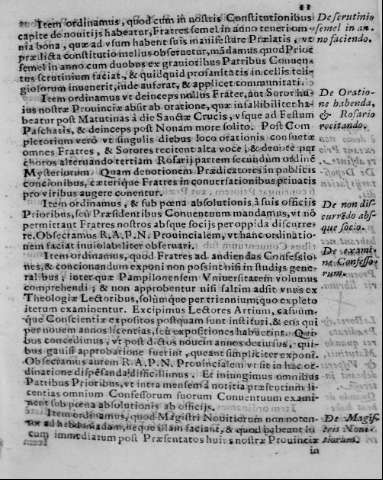 11
Item ordinamus, quod cum in nostris Constitutionibus De scrutinio
capite de nouitijs habeatur, Fratres semel in anno teneri semel in an-
nia bona, quæ ad vsum habent suis manifestare Prælatis, vt no faciendo.
prædicta constitutio melius obseruetur, mãdamus quod Prior
semel in anno cum duobus ex grauioribus Patribus Conuen-
tus scrutinium faciat, & quidquid profanitatis in cellis reli-
giosorum inuenerit, inde auferat, & applicet communitati.
Item ordinamus vt deinceps nullus Frater, aut Soror hu- De Oratio-
ius nostræ Prouinciæ absit ab oratione, quæ infallibiliter ha- ne habenda,
beatur post Matutinas à die Sanctæ Crucis, vsque ad Festum & Rosario
Paschatis, & deinceps post Nonam more solito. Post Com- recitando.
pletorium verò vt singulis diebus loco orationis consuetæ
omnes Fratres, & Sorores recitent alta voce, & deuotè per
choros alternando tertiam Rosarij partem secundum ordinẽ
Mysteriorum. Quam deuotionem Prædicatores in publicis
concionibus, cæterique Fratres in conuersationibus priuatis
pro viribus augere conentur.
Item ordinamus, & sub pœna absolutionis à suis officijs De non dis-
Prioribus, seu Præsidentibus Conuentuum mandamus, vt nõ currẽdo abs-
permittant Fratres nostros absque socijs per oppida discurre- que socio.
re. Obsecramus R.A.P.N. Prouincialem, vt hanc ordinatio-
nem faciat inuiolabiliter obseruari.
Item ordinamus, quod Fratres ad audiendas Confessio- De exami-
nes, & concionandum exponi non possint nisi in studijs gene- ne Confesso-
ralibus, inter quæ Pampilonensem Vniuersitatem volumus rum.
comprehendi; & non approbentur nisi saltim adsit vnus ex
Theologiæ Lectoribus, solùmque per triennium; quo expleto
iterum examinentur. Excipimus Lectores Artium, casuum-
que Conscientiæ expositos postquam sunt instituti, & eis qui
per nouem annos licentias, seu expositiones habuerint. Qui-
bus concedimus, vt post dictos nouem annos decursus, qui-
bus gauisi approbatione fuerint, queant simpliciter exponi.
Obsecramus autem R.A.P.N. Prouincialem vt sit in hac or-
dinatione dispẽsanda difficillimus. Et iniungimus omnibus
Patribus Prioribus, vt intra mensem à notitia præsentium li-
centias omnium Confessorum suorum Conuentuum exami-
nent sub pœna absolutionis ab officijs.
Item ordinamus, quod Magistri Nouitiorum non poten- De Magis-
ad hebdomadam, neque illam faciant, & quod habeant lo- tris Noui-
cum immediatum post Præsentatos huius nostræ Prouinciæ tiorum.
in